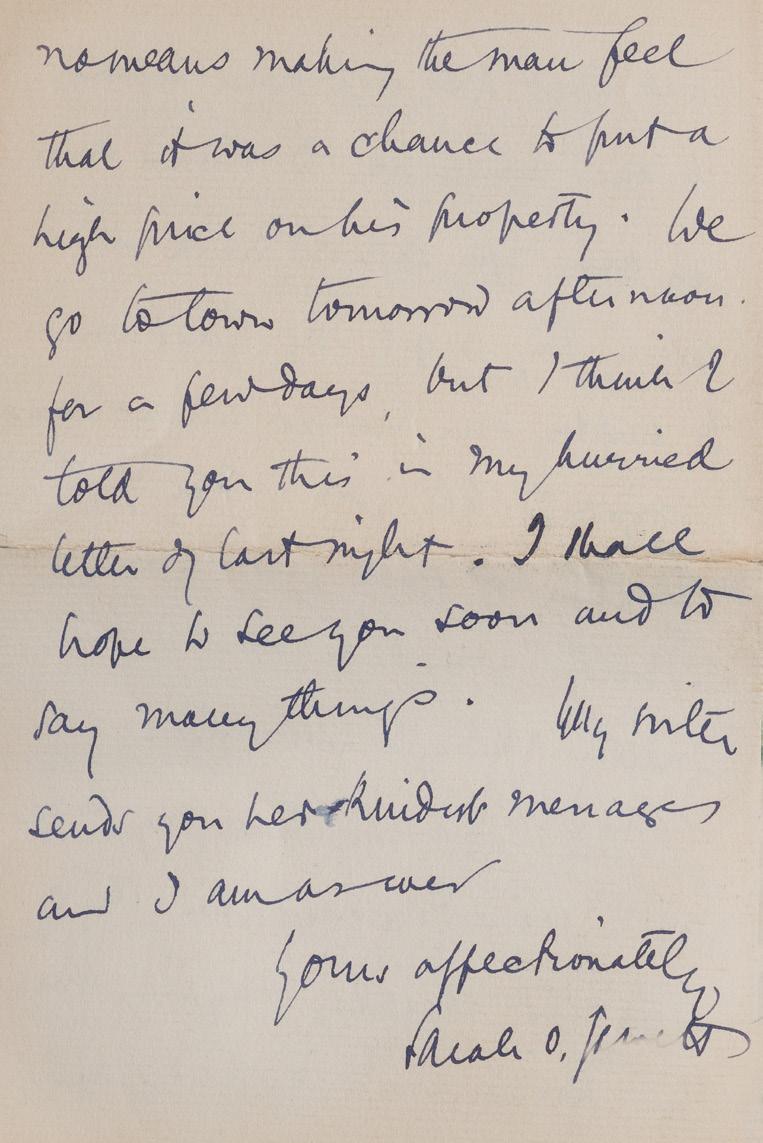 no means making the man feel
that it was a chance to put a
high price on his property. We
go to town tomorrow afternoon.
for a few days, but I think I
told you this in my hurried
letter of last night. I shall
hope to see you soon and to
say many things. My sister
sends you her kindest messages
and I am as ever
Yours affectionately
Sarah O. Jewett